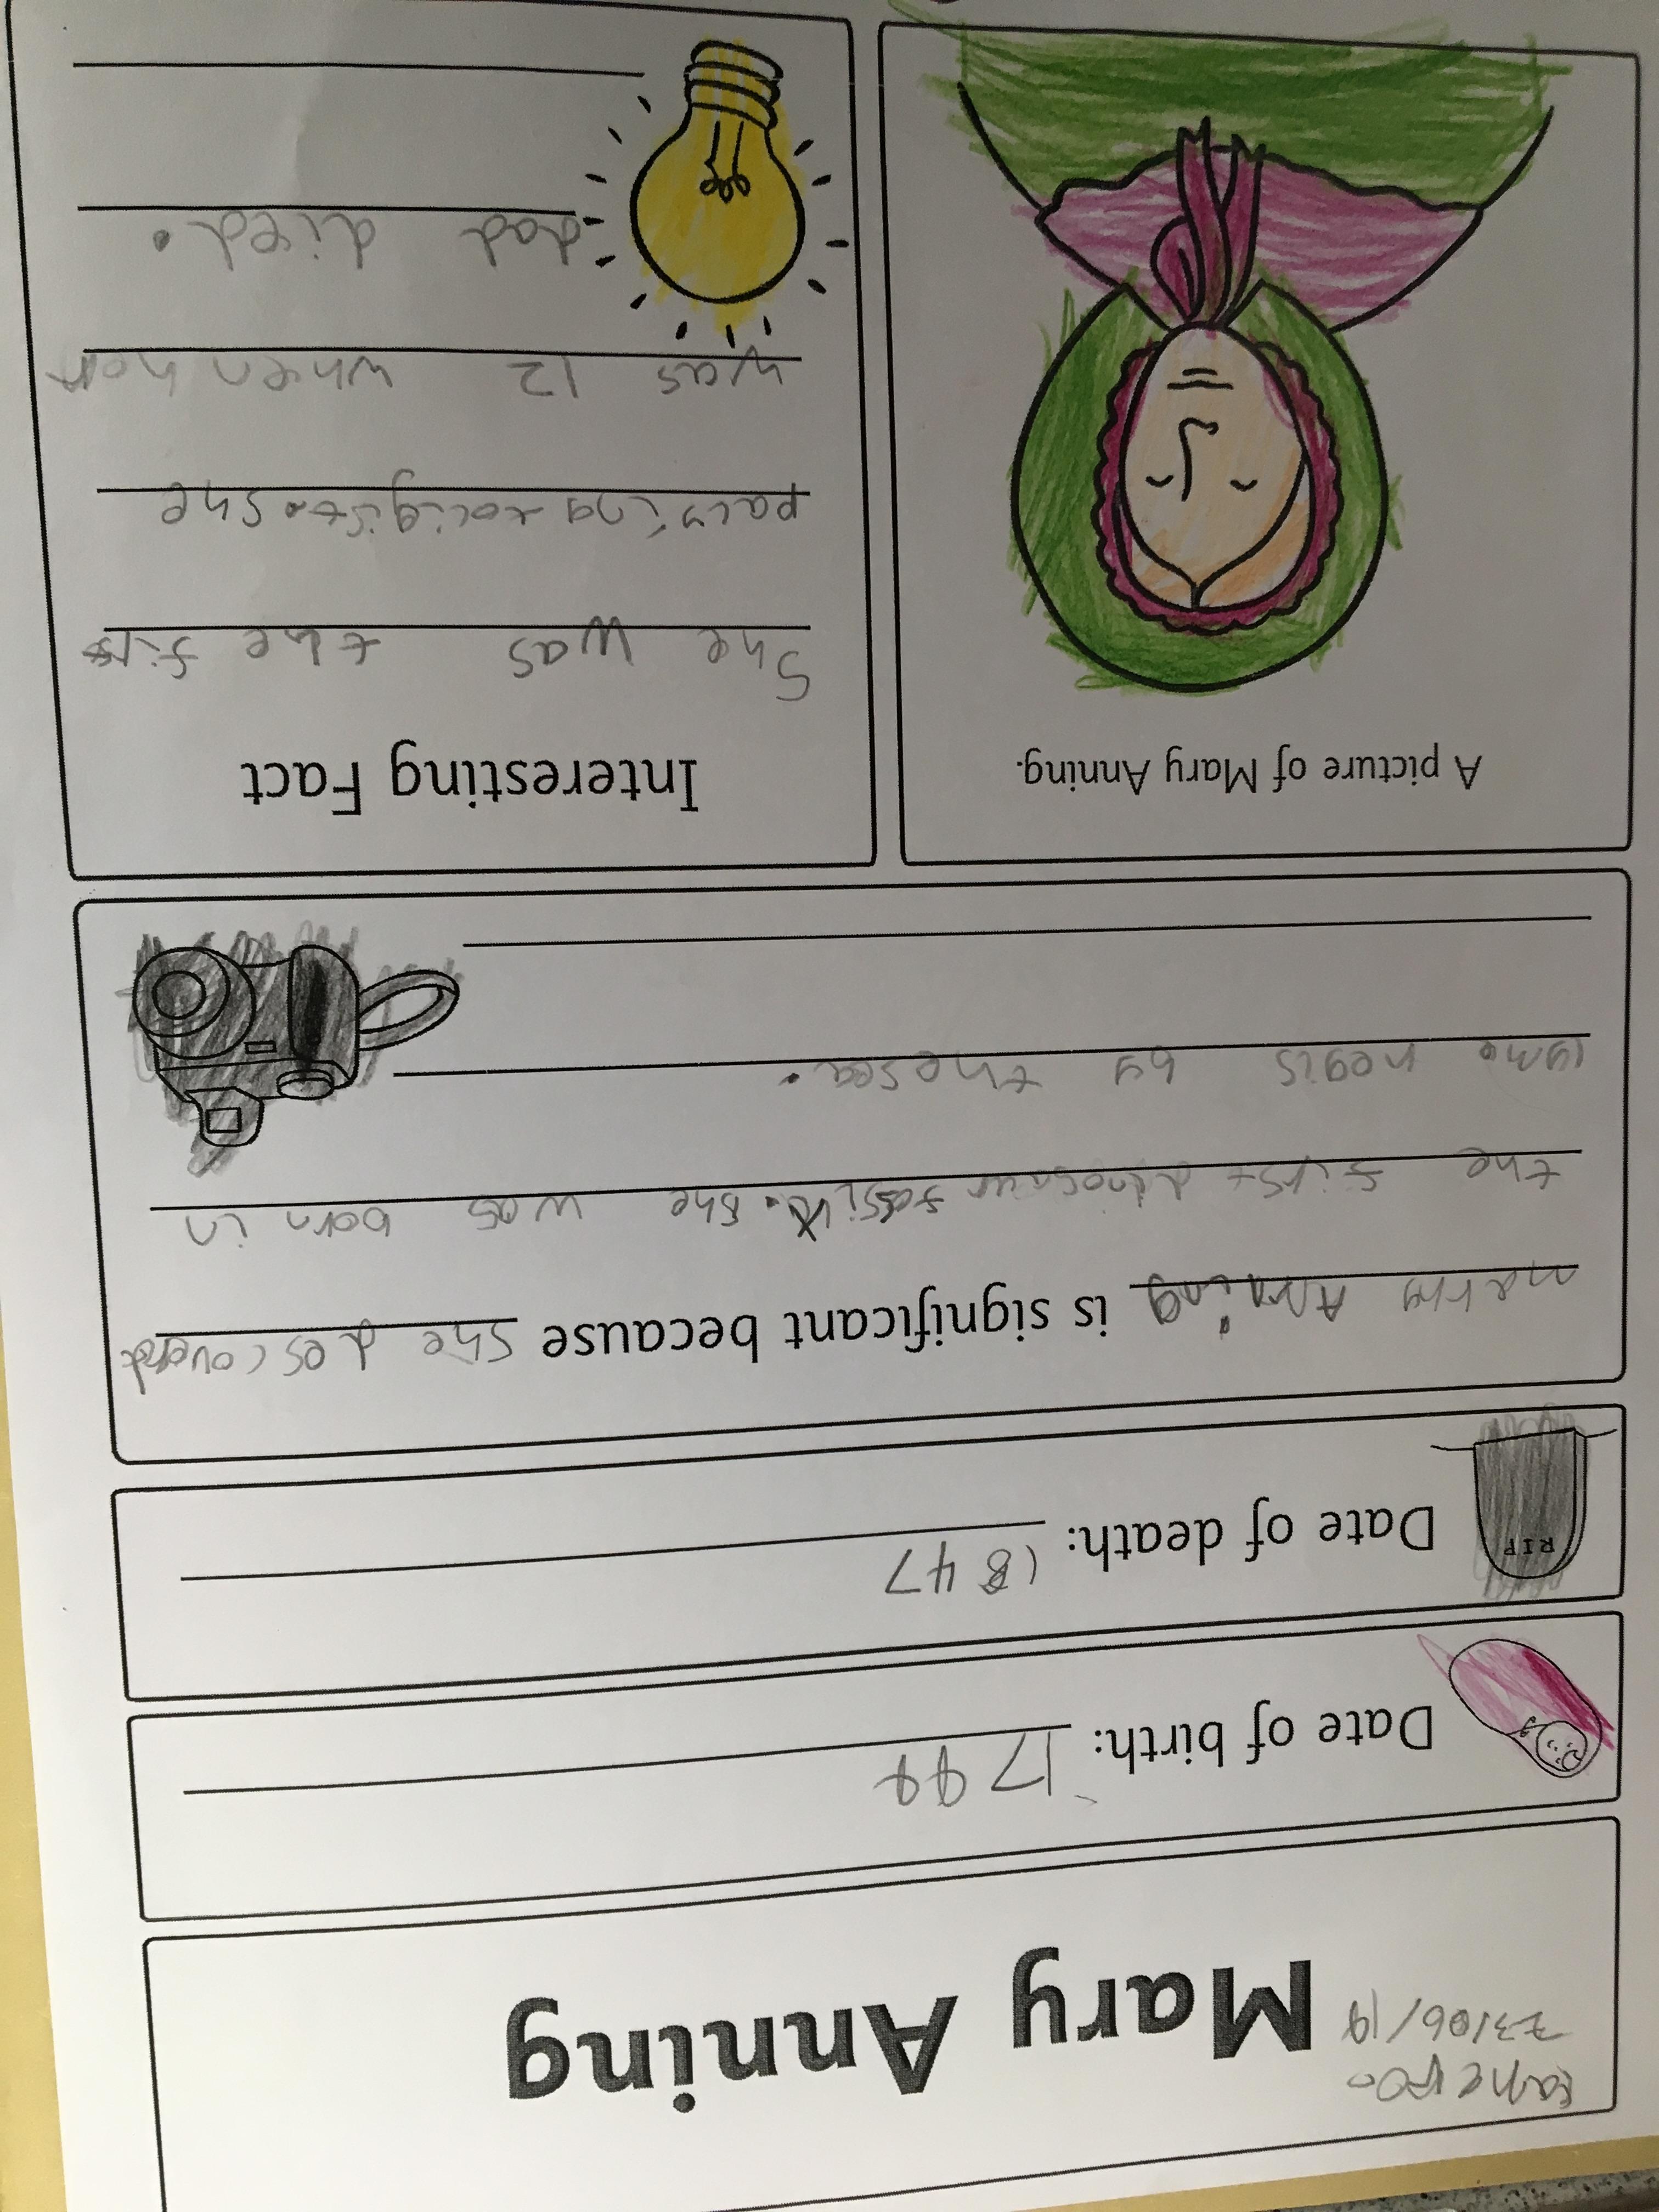 23/06/19
Mary Anning
Date of birth: 1799
Date of death: 1847
RIP
marry Anning is significant because she descoverd
the first dinosaur fosill. She was born in
lyme regis by thesea.
A picture of Mary Anning.
Interesting Fact
She was the first
was 12 when her
dad died.